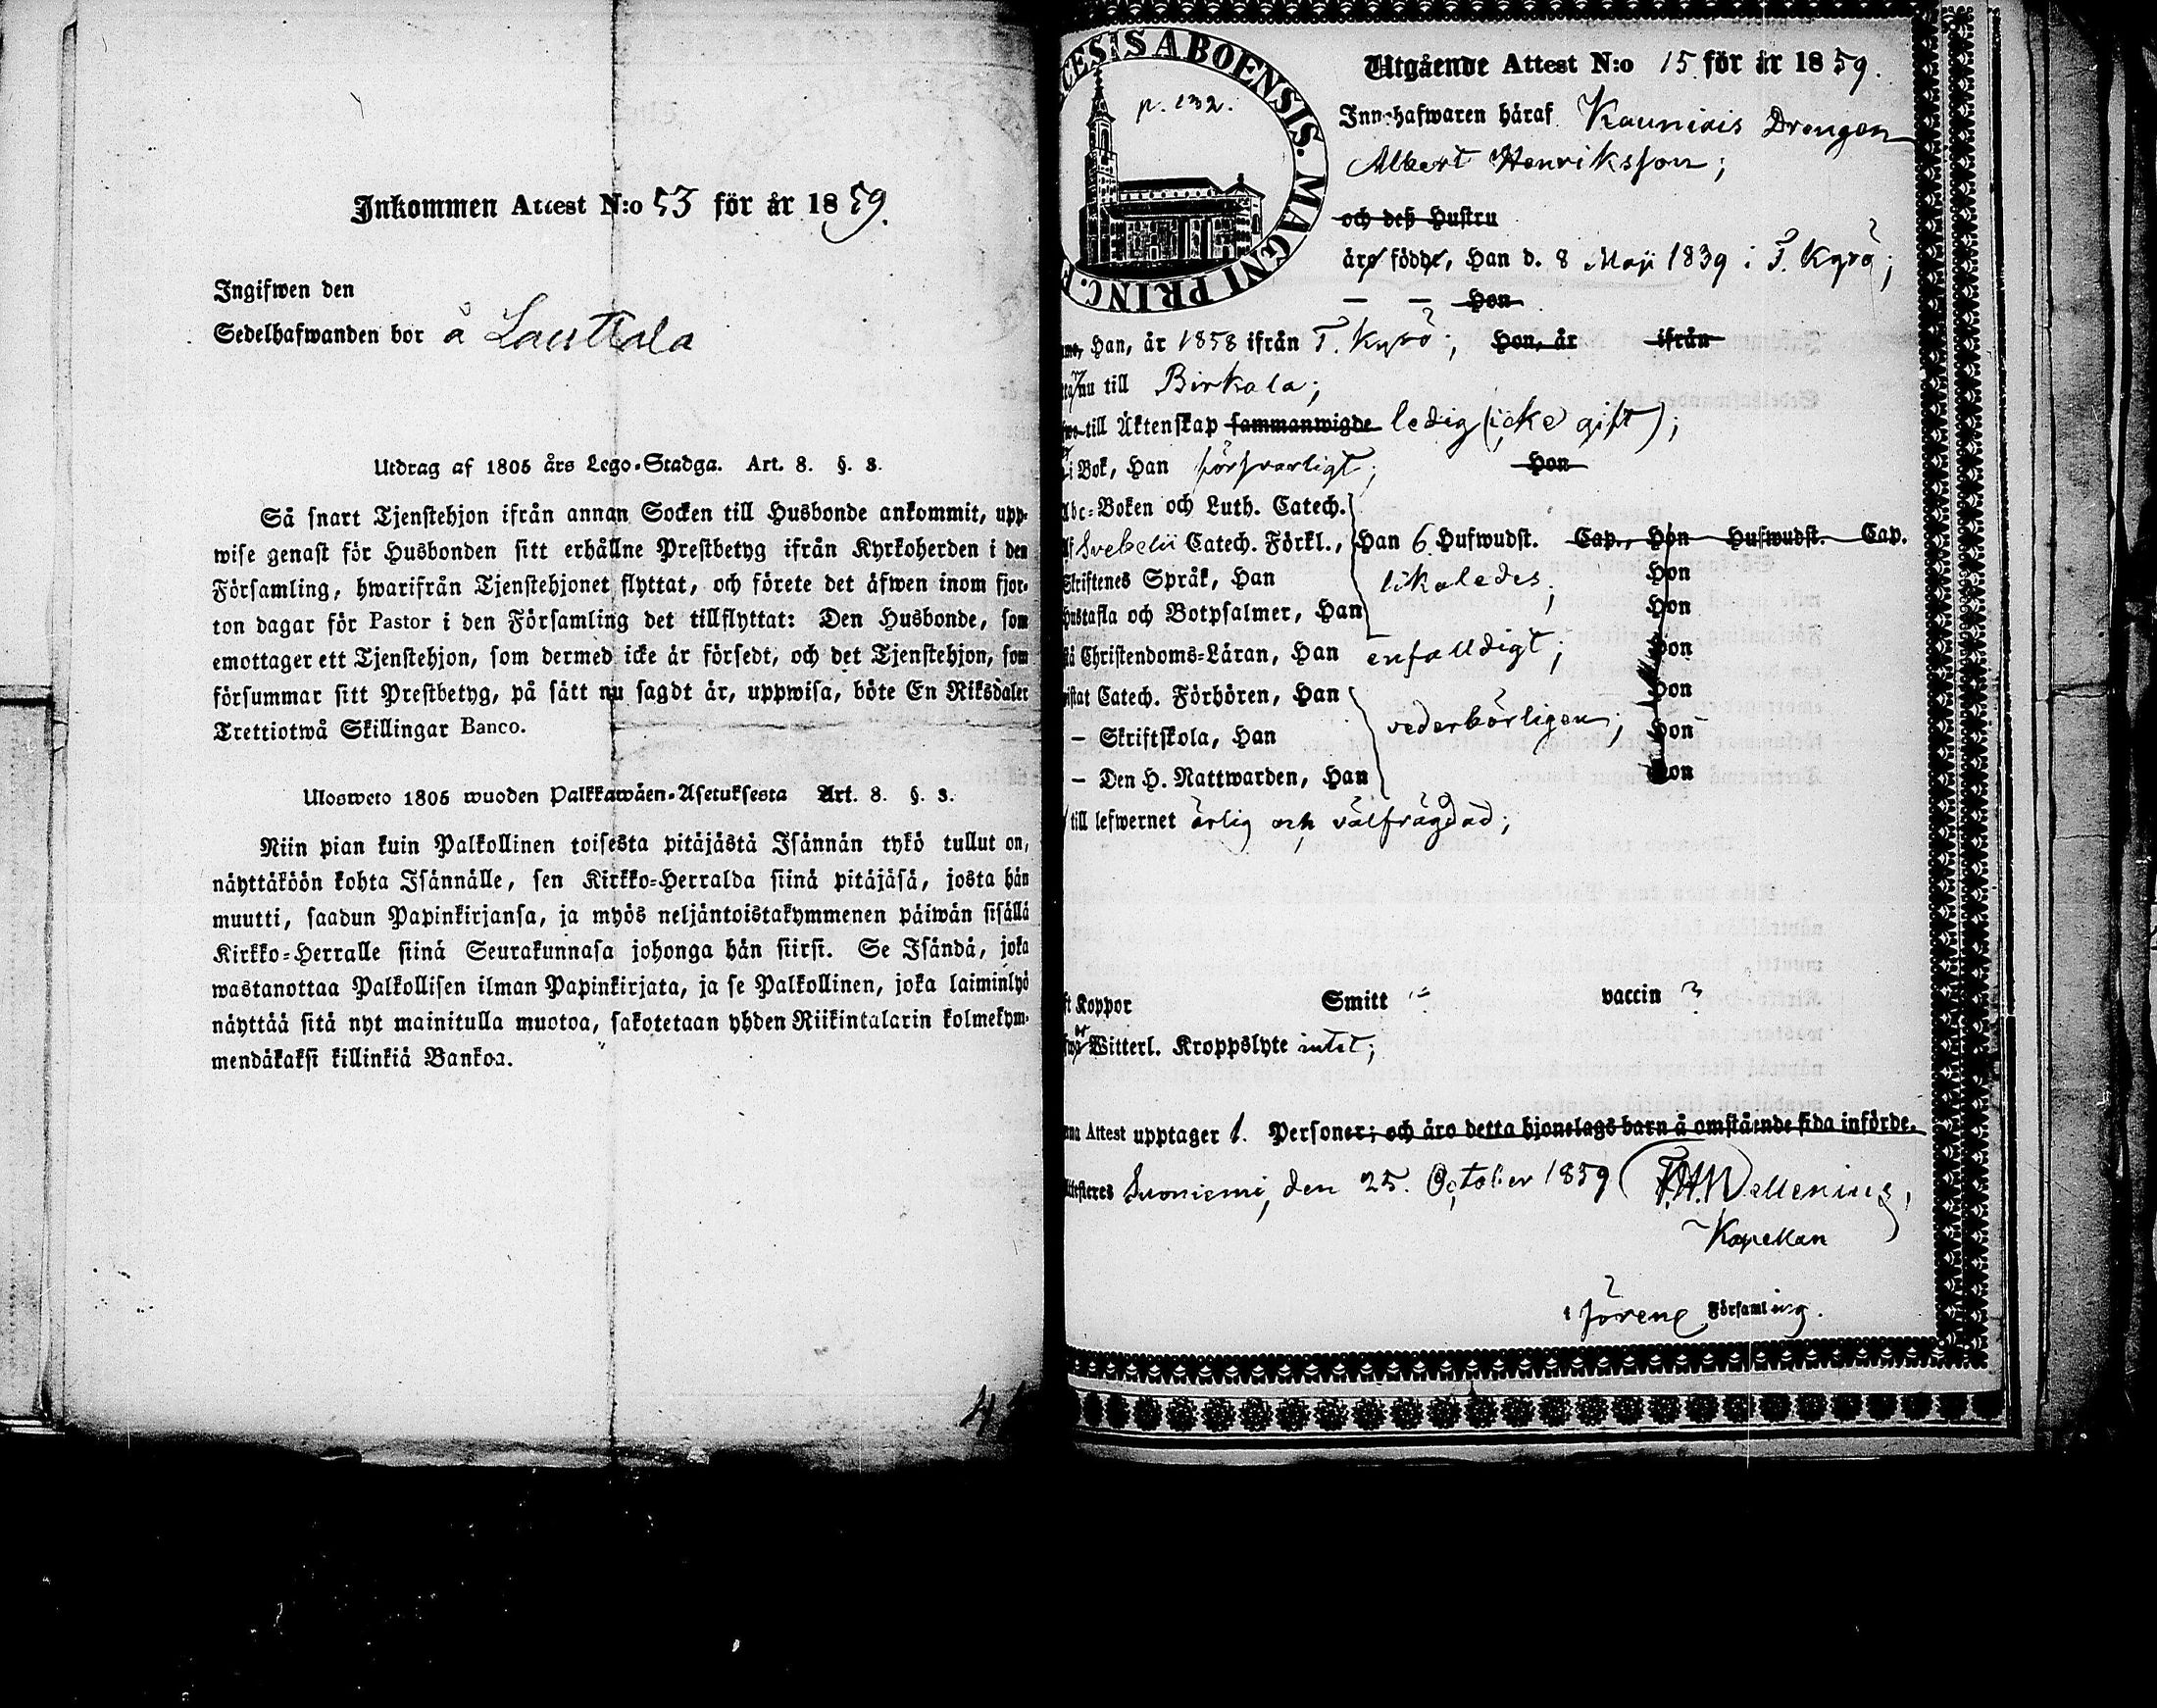 Inkommen Attest N:o 53 för år 1859.
Ingifwen den
Sedelhafwanden bor å Lauttala
Utdrag af 1805 års Lego-Stadga. Art. 8. §. 3.
Så snart Tjenstehjon ifrån annan Socken till Husbonde ankommit, upp-
wise genast för Husbonden sitt erhållne Prestbetyg ifrån Kyrkoherden i den
Församling, hwarifrån Tjenstehjonet flyttat, och förete det äfwen inom fjor-
ton dagar för Pastor i den Församling det tillflyttat: Den Husbonde, som
emottager ett Tjenstehjon, som dermed icke är försedt, och det Tjenstehjon, som
försummar sitt Prestbetyg, på sätt nu sagdt är, uppwisa, böte En Riksdaler
Trettiotwå Skillingar Banco.
Ulosweto 1805 wuoden Palkkawäen-Asetuksesta Art. 8. §. 3.
Niin pian kuin Palkollinen toisesta pitäjästä Isännän tykö tullut on,
näyttäköön kohta Isännälle, sen Kirkko-Herralda siinä pitäjäsä, josta hän
muutti, saadun Papinkirjansa, ja myös neljäntoistakymmenen päiwän sisällä
Kirkko-Herralle siinä Seurakunnasa johonga hän siirsi. Se Isändä, joka
wastanottaa Palkollisen ilman Papinkirjata, ja se Palkollinen, joka laiminlyö
näyttää sitä nyt mainitulla muotoa, sakotetaan yhden Riikintalarin kolmekym-
mendäkaksi killinkiä Bankoa.
CESIS ABOENSIS. MAGNI PRINC. F
p. 132.
Utgående Attest N:o 15 för år 1859.
Innehafwaren häraf Kauniais Drengen
Albert Henriksson;
och deß Hustru
äro födde, Han d. 8 Maji 1839 i T. Kyrö;
— — Hon
Han, år 1858 ifrån T. Kyrö; Hon, år ifrån
nu till Birkala;
till Äktenskap sammanwigde ledig (icke gift);
i Bok, Han försvarligt; Hon
Abc-Boken och Luth. Catech.
af Svebelii Catech. Förkl., Han 6 Hufwudst. Cap., Hon Hufwudst. Cap.
Skriftenes Språk, Han likaledes; Hon
Hustafla och Botpsalmer, Han Hon
Christendoms-Läran, Han enfalldigt; Hon
Catech. Förhören, Han Hon
— Skriftskola, Han vederbörligen; Hon
— Den H. Nattwarden, Han Hon
till lefwernet ärlig och välfrägdad;
Koppor Smitt vaccin
Witterl. Kroppslyte intet;
Attest upptager 1. Personer; och äro detta hjonelags barn å omstående sida införde.
Attesteres Suoniemi, den 25. October 1859 Wallenius,
Kapellan
i förene Församling.